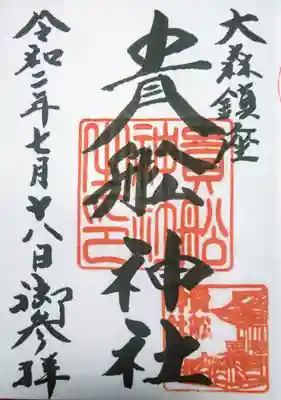 大森鎮座
貴船神社
令和二年七月十八日御参拝
貴船
神社